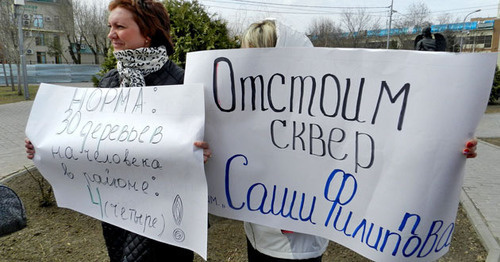 НОРМА:
30 деревьев
на человека
в районе:
4 (четыре)!
Отстоим
сквер
им. Саши Филиппова